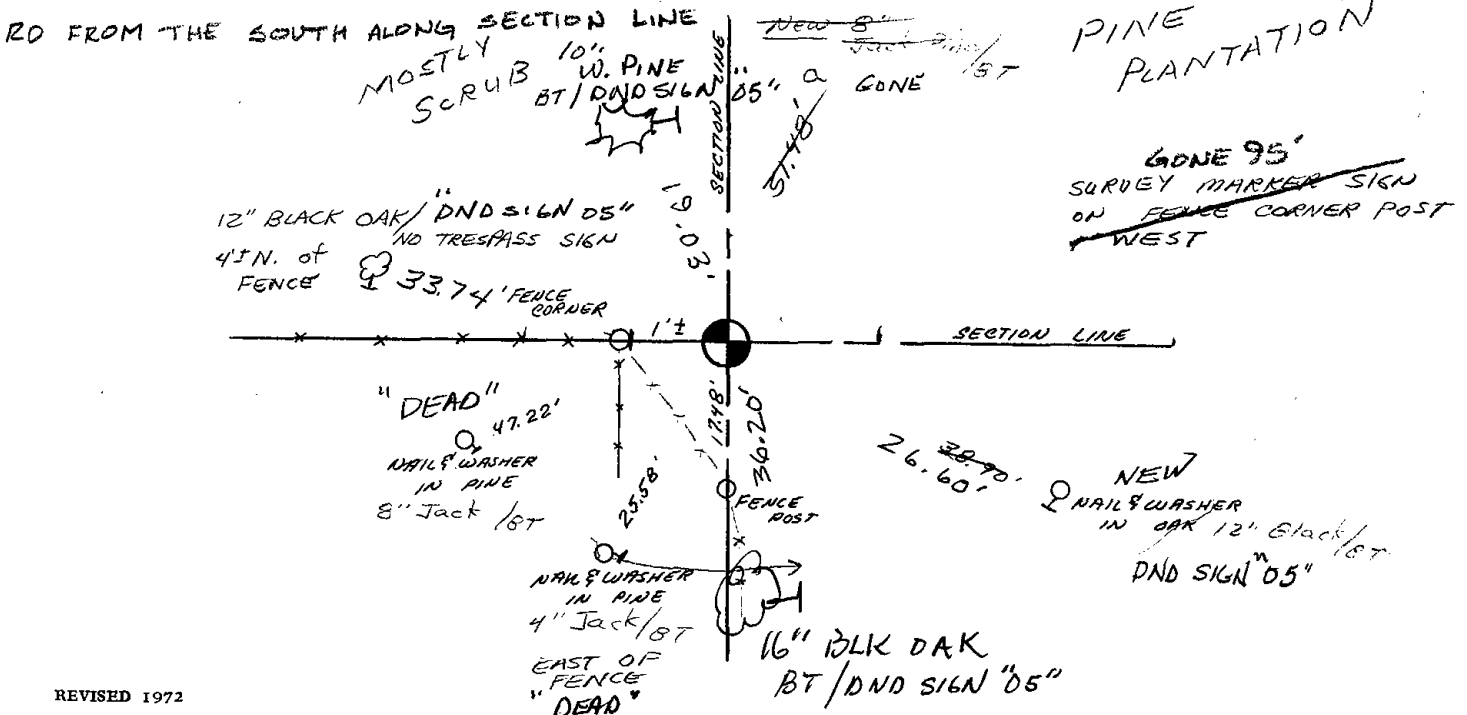 RD FROM THE SOUTH ALONG SECTION LINE
MOSTLY
SCRUB
10"
W. PINE
BT/DND SIGN "05"
SECTION LINE
New 8"
Jack Pine/BT
GONE
51.48'
PINE
PLANTATION
GONE 95'
SURVEY MARKER SIGN
ON FENCE CORNER POST
WEST
12" BLACK OAK/"DND SIGN 05"
NO TRESPASS SIGN
4'± N. of
FENCE
33.74'
FENCE
CORNER
19.03'
1'±
SECTION LINE
"DEAD"
47.22'
NAIL & WASHER
IN PINE
8" Jack /BT
25.58'
17.48'
36.20'
FENCE
POST
26.60'
38.90'
NEW
NAIL & WASHER
IN OAK 12" Black/BT
DND SIGN "05"
NAIL & WASHER
IN PINE
4" Jack/BT
EAST OF
FENCE
"DEAD"
16" BLK OAK
BT/DND SIGN "05"
REVISED 1972